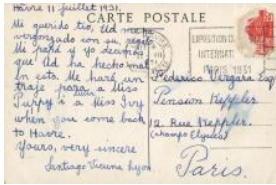 Havre 11 juillet 1931.
CARTE POSTALE
Mi querido tio, Ud me ha
vergonzado con su regalo.
Mi mamá y yo decimos
que Ud ha hecho mal
En esto. Me haré un
traje para a Miss
Puppy i a Miss Ivy
when you come back
to Havre.
Yours, very sincere
Santiago Vicuna Lyon
EXPOSITION
INTERNAT
PARIS 1931
Federico Vergara Esq
Pension Keppler
12 Rue Keppler
(Champs Elysees)
Paris.